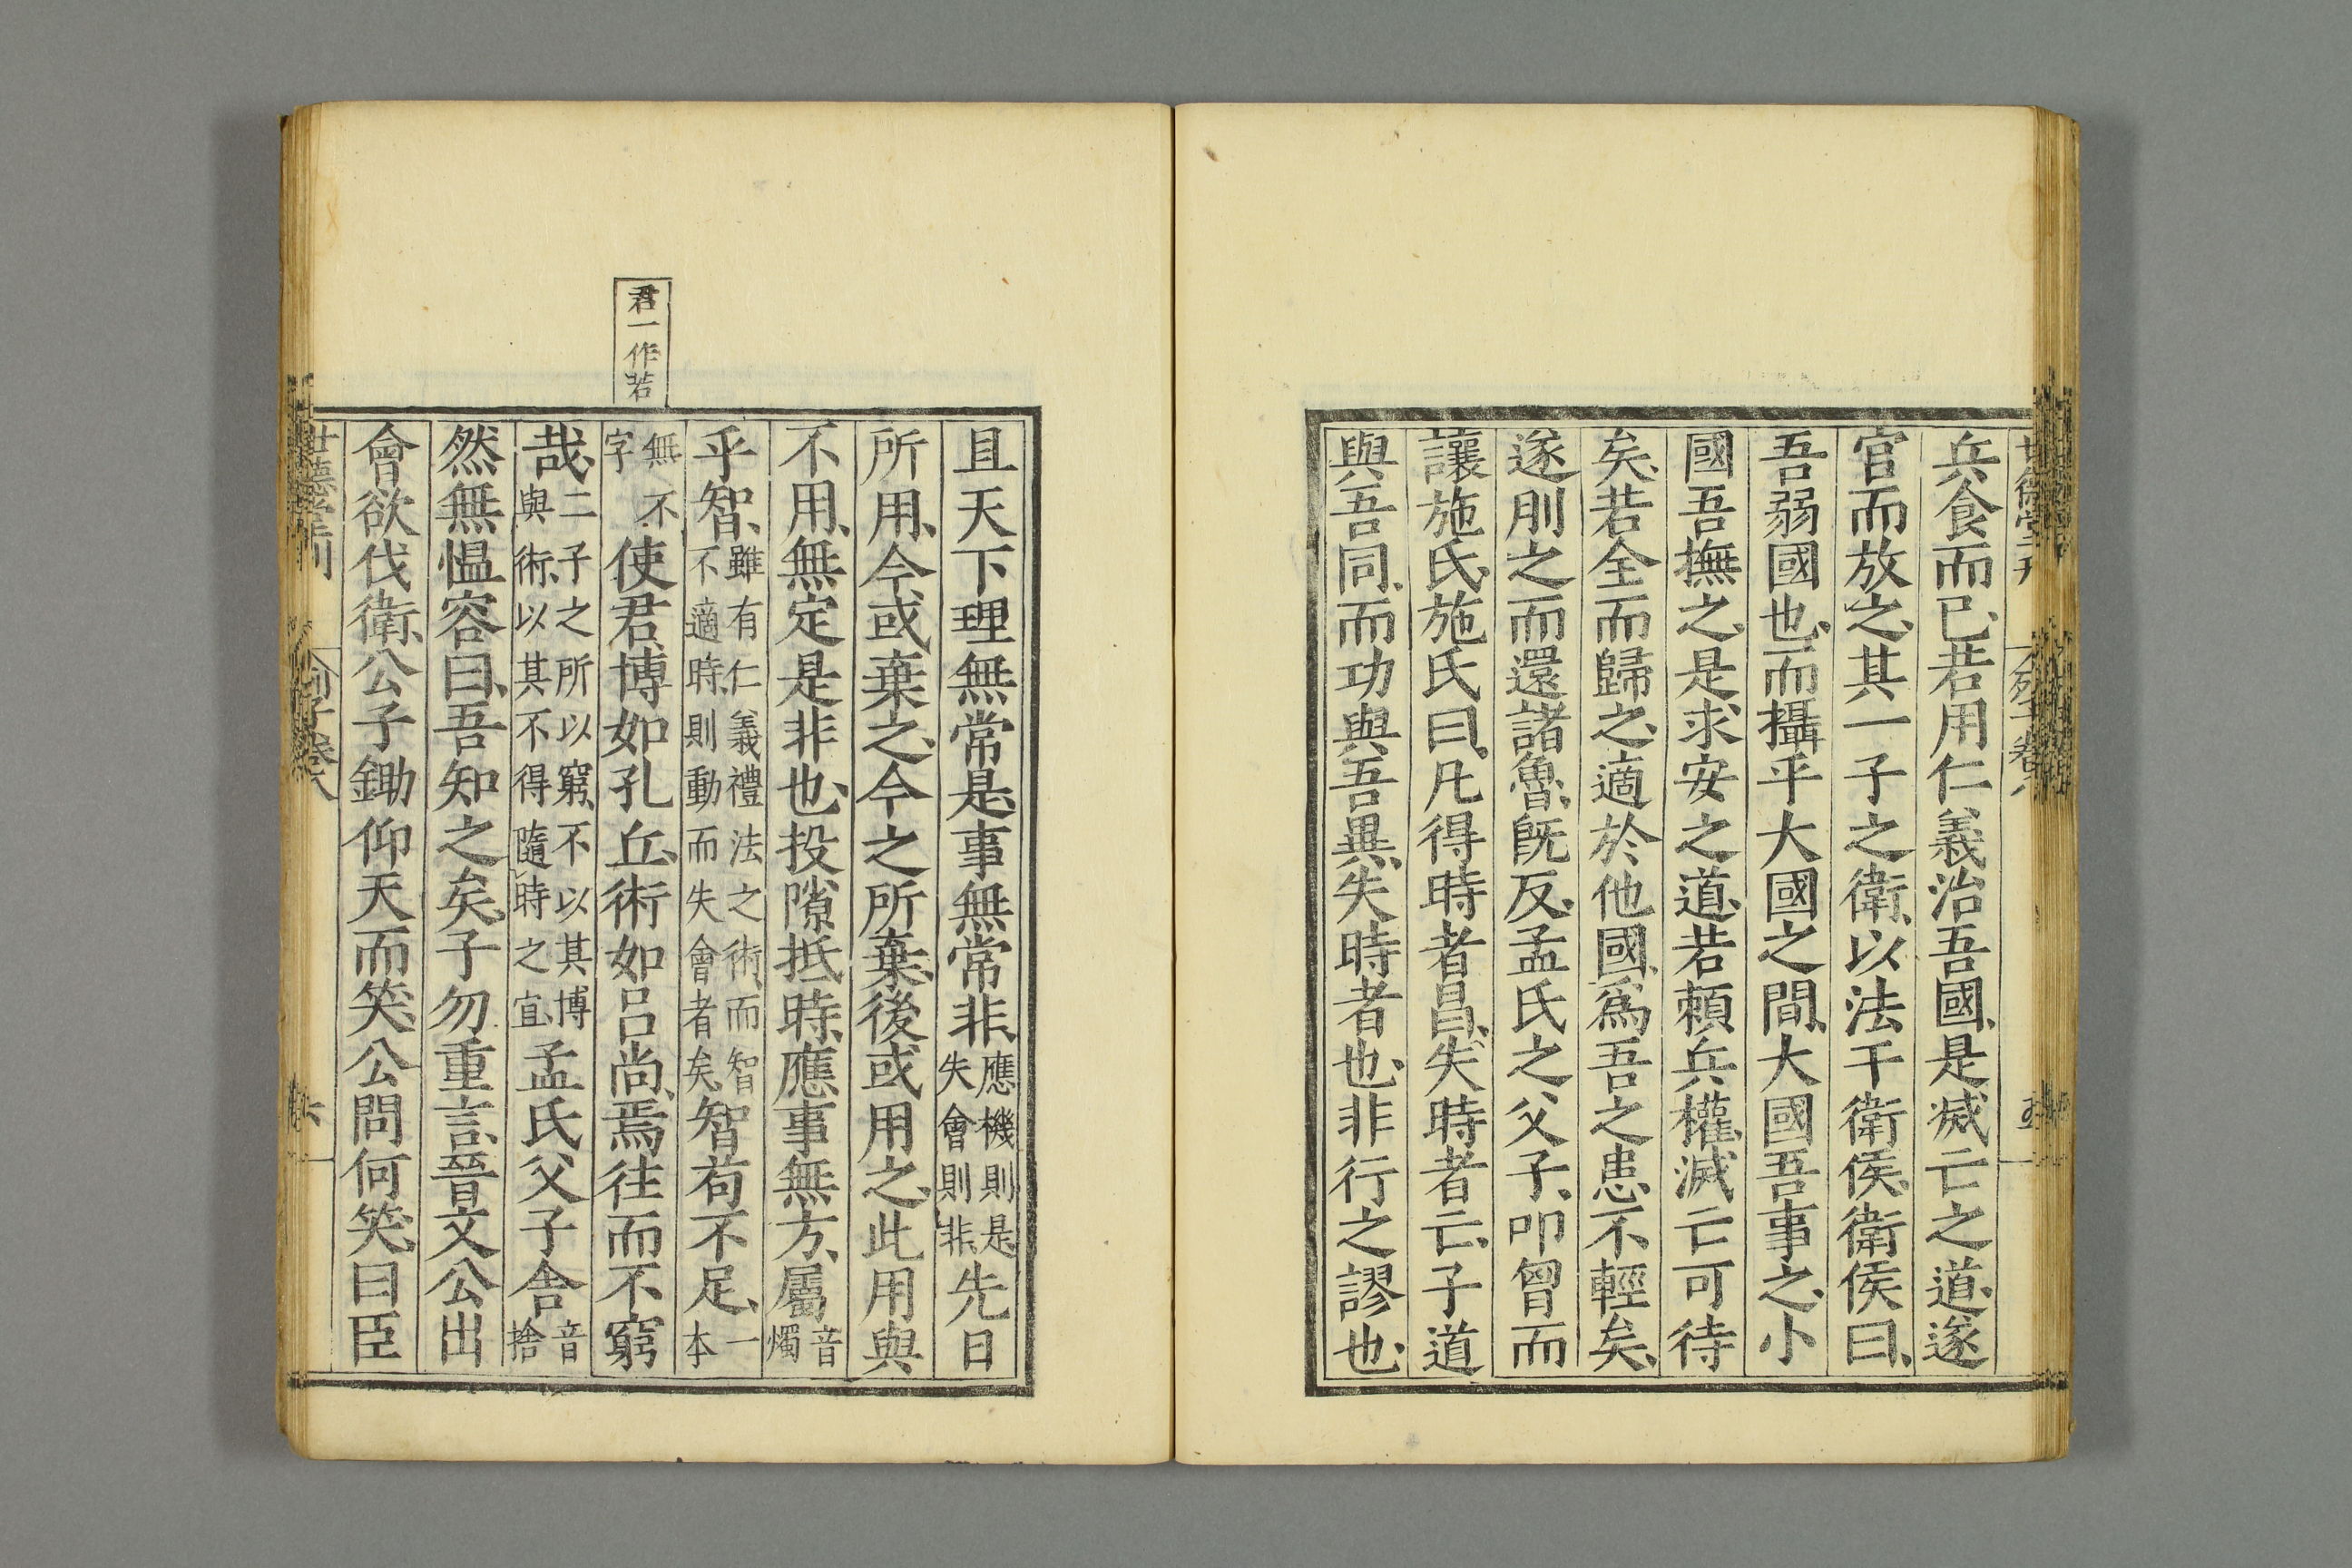 兵食而已、若用仁義治吾國、是滅亡之道、遂
官而放之、其一子之衛、以法干衛侯、衛侯曰、
吾弱國也、而攝乎大國之間、大國吾事之、小
國吾撫之、是求安之道、若頼兵權、滅亡可待
矣、若全而歸之、適於他國、爲吾之患、不輕矣、
遂刖之而還諸魯、旣反、孟氏之父子、叩曾而
讓施氏、施氏曰、凡得時者昌、失時者亡、子道
與吾同、而功與吾異、失時者也、非行之謬也、
且天下理無常是、事無常非、應機則是失會則非、先日
所用、今或棄之、今之所棄、後或用之、此用與
不用、無定是非也、投隙抵時、應事無方、屬音燭
乎智、雖有仁義禮法之術、而智不適時、則動而失會者矣、智苟不足、一本
無不字使君、博如孔丘、術如呂尚、焉往而不窮
哉、二子之所以窮、不以其博與術、以其不得隨時之宜、孟氏父子舍音捨
然無愠容曰、吾知之矣、子勿重言、晉文公出
會欲伐衛、公子鋤仰天而笑、公問何笑、曰臣
君一作若
世德堂刊
列子卷八
六